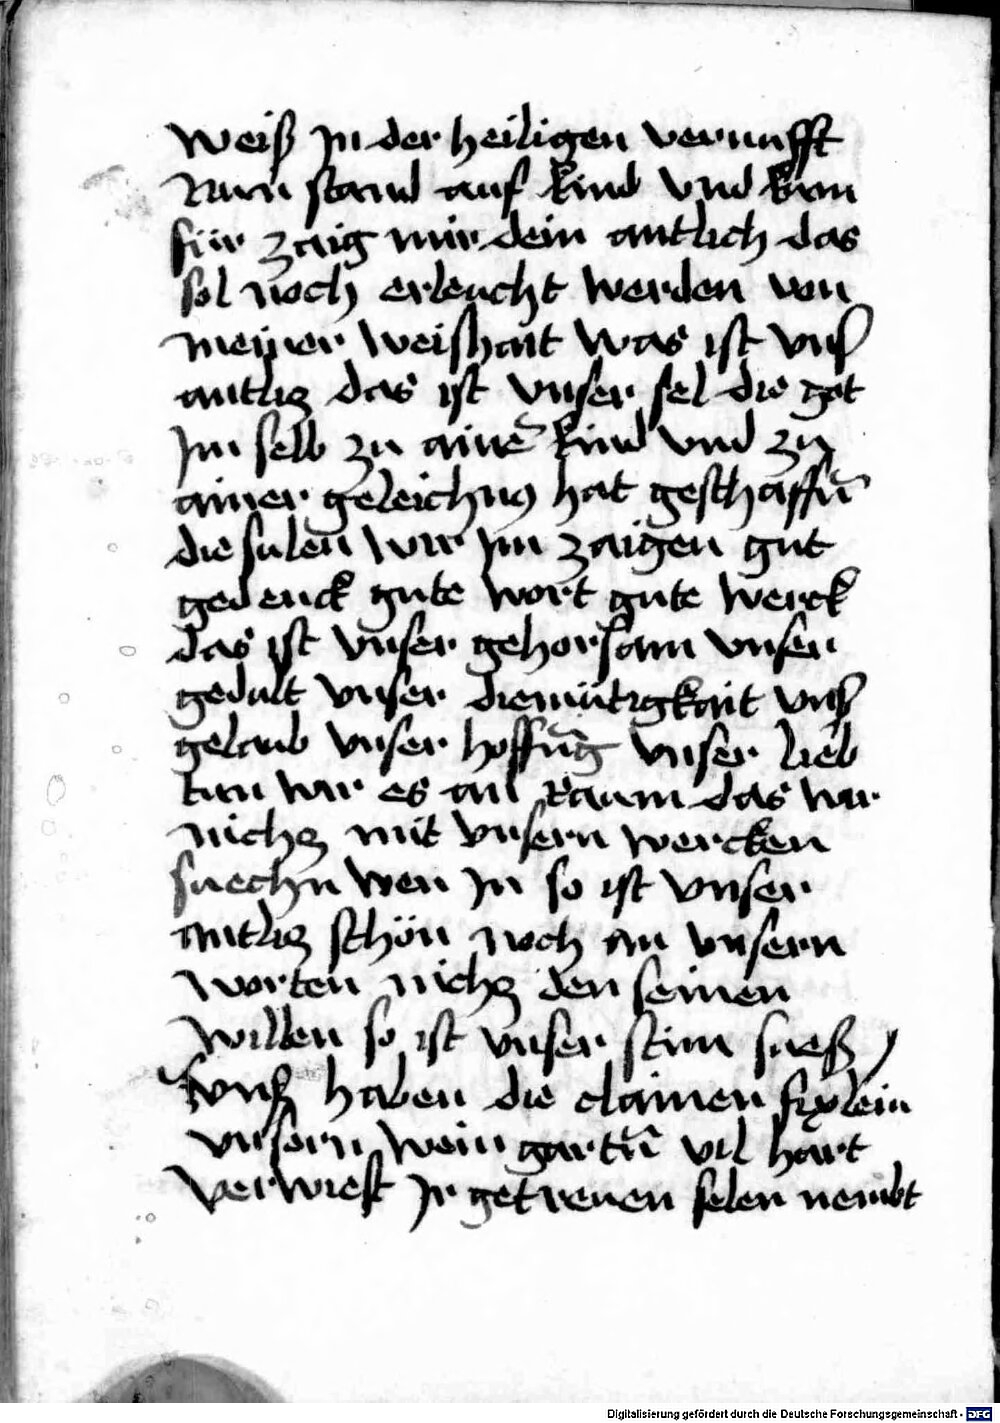 weiß Jn der heiligen vernunfft
Nun stand auf kind vnd kum
für zaig mir dein antlich das
sol noch erleucht werden von
meiner weishait was ist vnß
antlitz das ist vnser sel die got
Jm selb zu aine͂ kind vnd zu
ainer geleichnus hat geschaffn͂
die sulen wir Jm zaigen gut
gedenck gute wort gute werck
das ist vnser gehorsam vnser
gedult vnser diemütigkait vnß
gelaub vnser hoffnu͂g vnser lieb
kun wir es an kaum das wir
nichtz mit vnsern wercken
suechn wen Jn so ist vnser
antlitz schön noch an vnsern
worten nichtz den seinen
willen so ist vnser stim sueß /
vnß haben die clainen fixlein
vnsern wein gartn͂ vil hart
verwiest Jr getreuen selen nembt
Digitalisierung gefördert durch die Deutsche Forschungsgemeinschaft - DFG